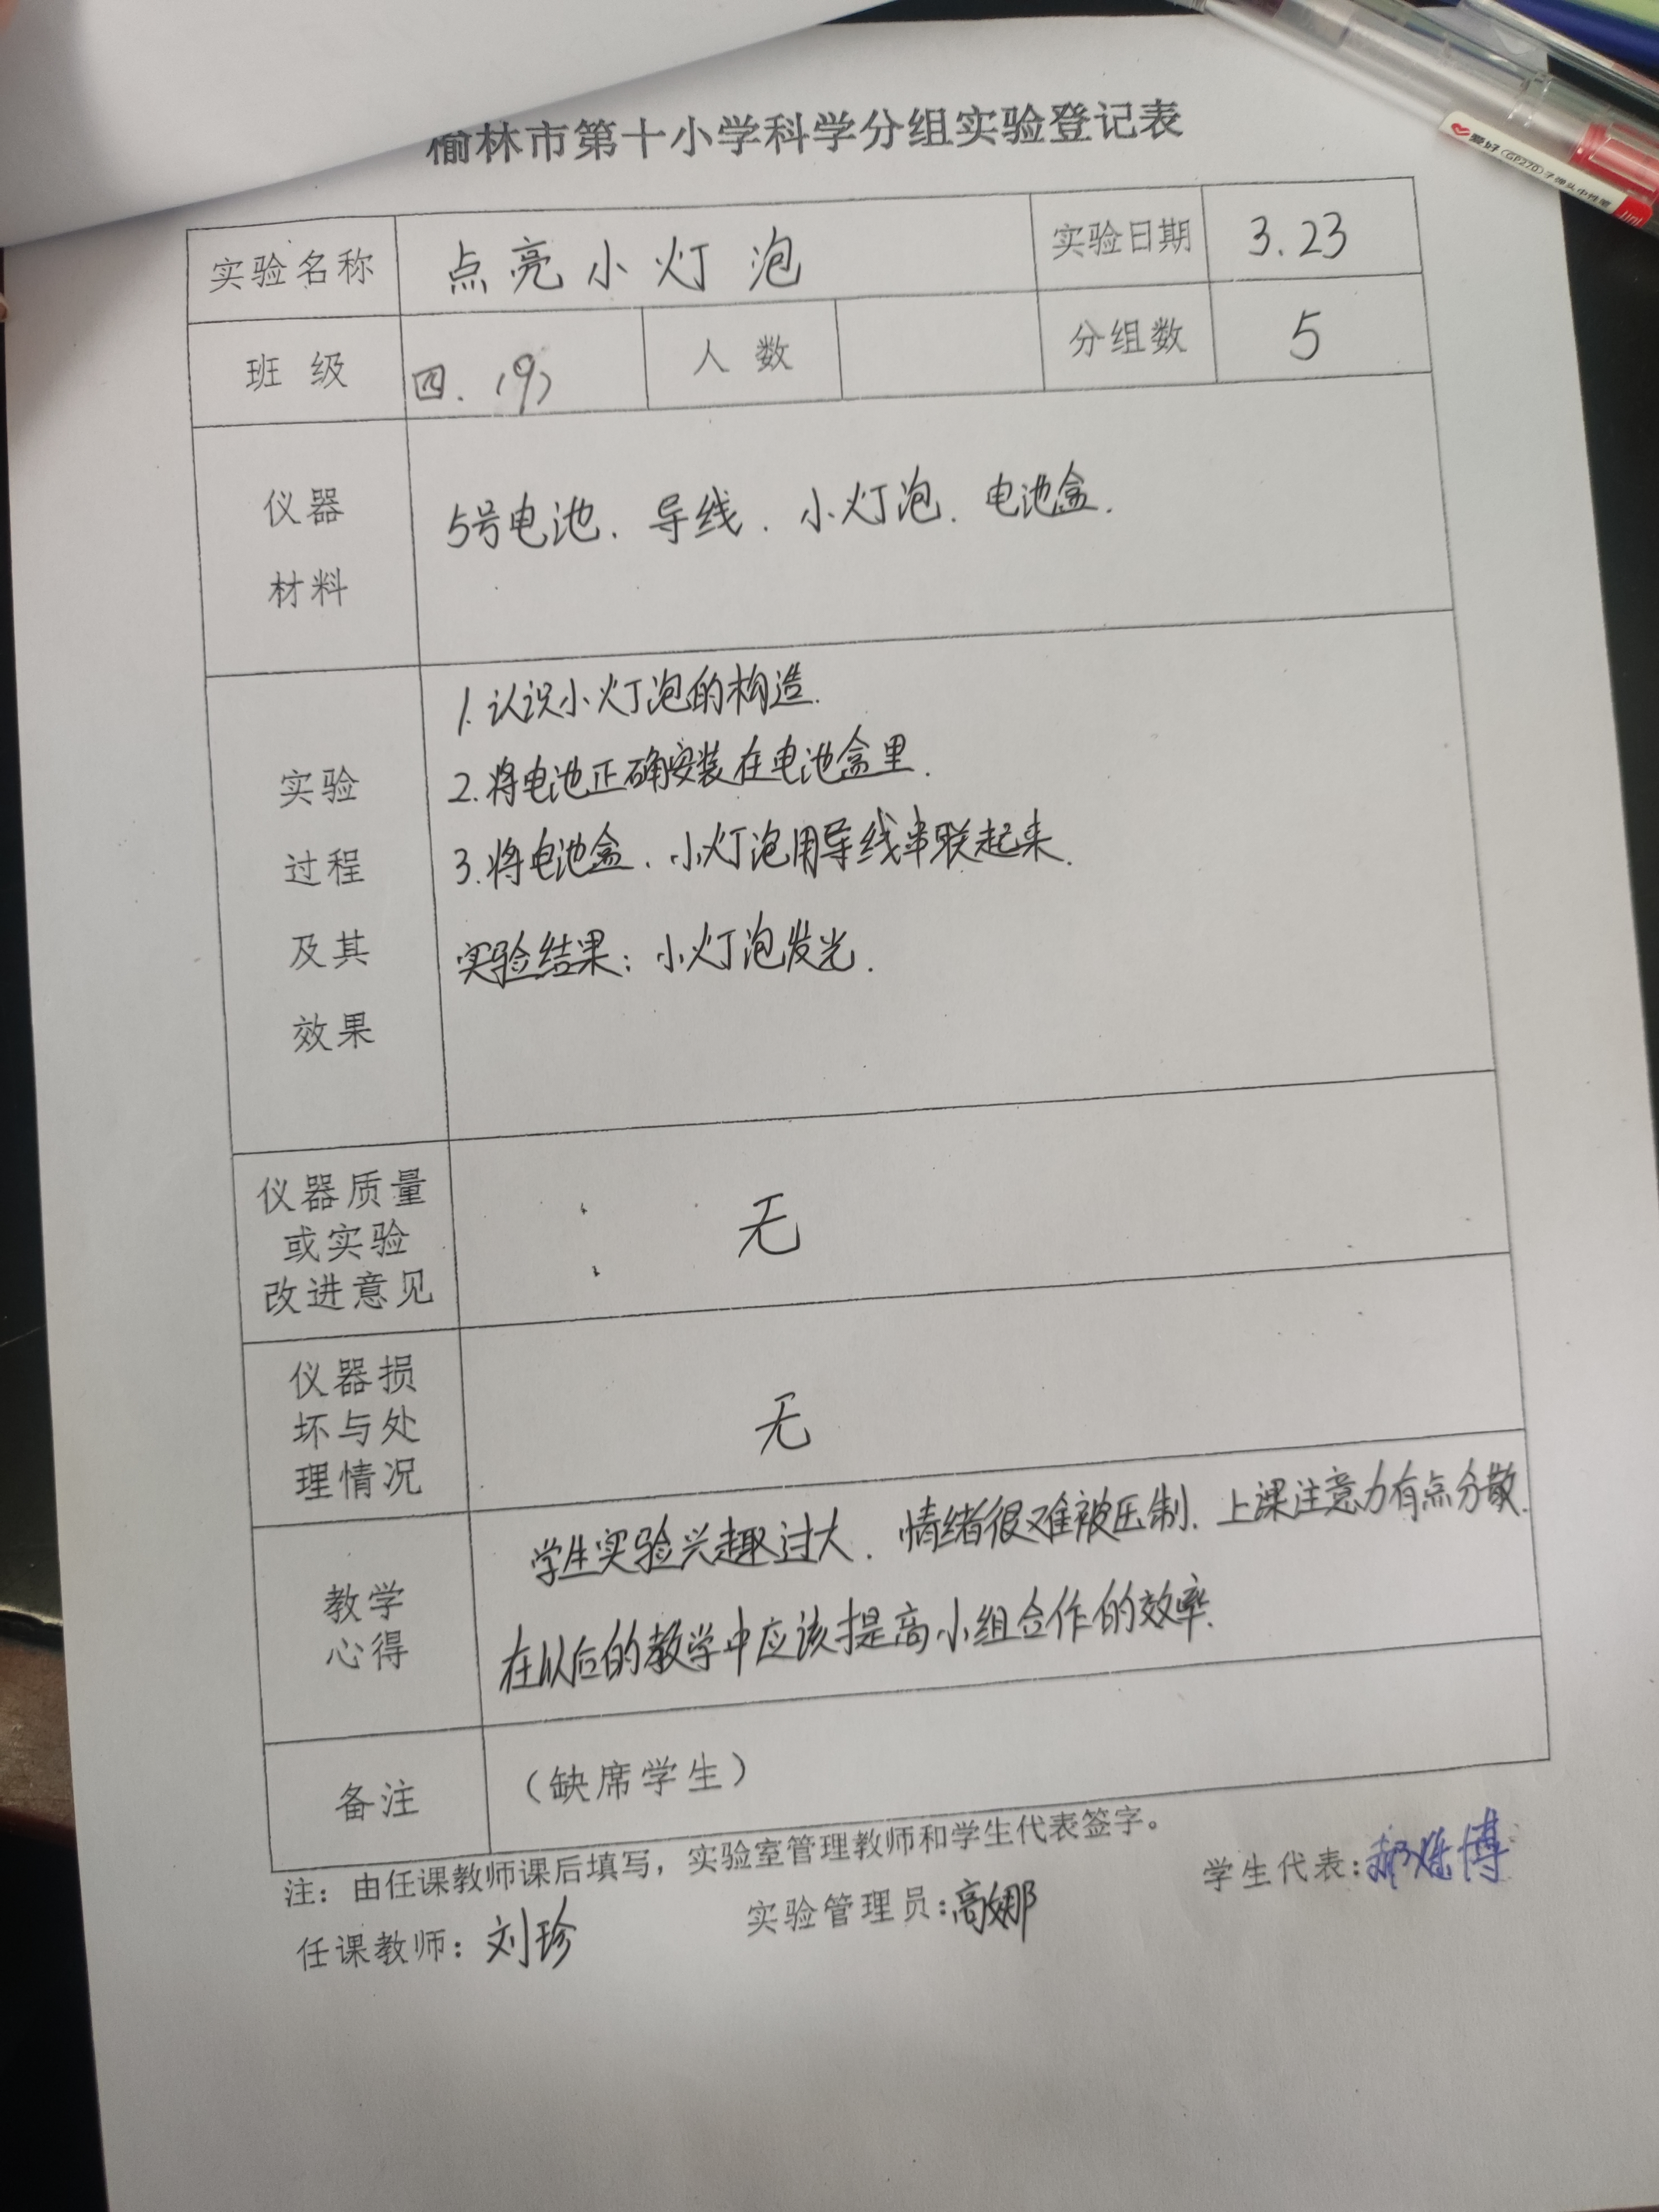 榆林市第十小学科学分组实验登记表
实验名称 点亮小灯泡 实验日期 3.23
班 级 四.(9) 人 数 分组数 5
仪器
材料
5号电池、导线、小灯泡、电池盒.
实验
过程
及其
效果
1.认识小灯泡的构造.
2.将电池正确安装在电池盒里.
3.将电池盒、小灯泡用导线串联起来.
实验结果:小灯泡发光.
仪器质量
或实验
改进意见
无
仪器损
坏与处
理情况
无
教学
心得
学生实验兴趣过大、情绪很难被压制、上课注意力有点分散.
在以后的教学中应该提高小组合作的效率.
备注 (缺席学生)
注:由任课教师课后填写,实验室管理教师和学生代表签字。
任课教师:刘珍 实验管理员:高娜 学生代表:
爱好 (GP270)子弹头中性笔